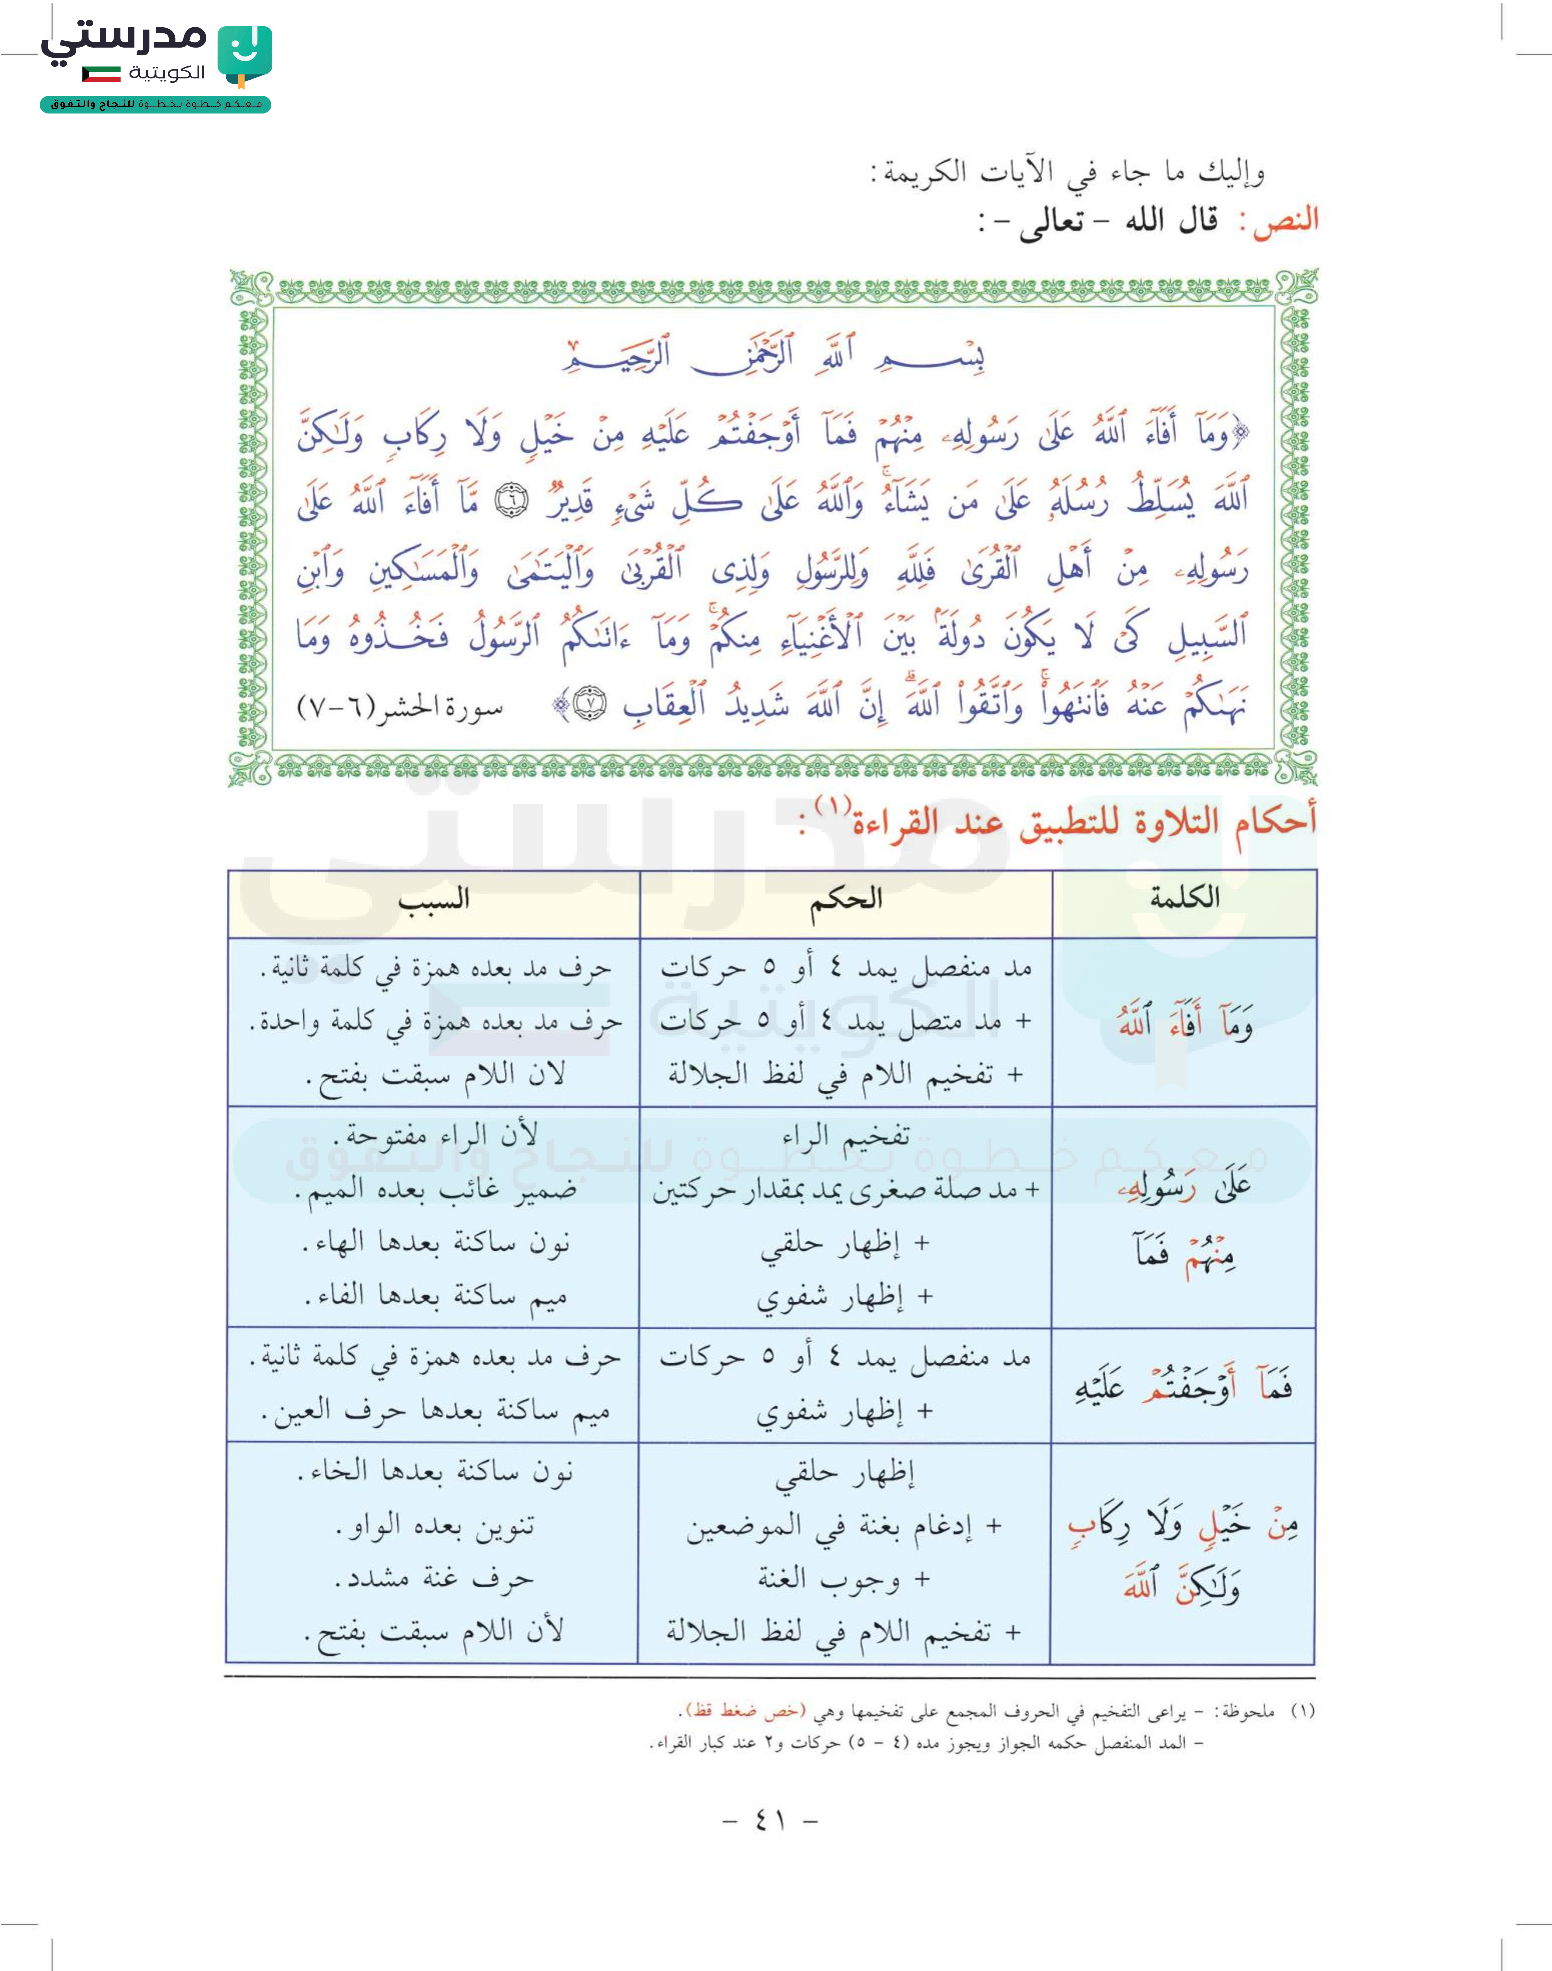 مدرستي
الكويتية
معكم خطوة بخطوة للنجاح والتفوق
وإليك ما جاء في الآيات الكريمة:
النص: قال الله – تعالى –:
بِسْمِ ٱللَّهِ ٱلرَّحْمَٰنِ ٱلرَّحِيمِ
﴿وَمَآ أَفَآءَ ٱللَّهُ عَلَىٰ رَسُولِهِۦ مِنْهُمْ فَمَآ أَوْجَفْتُمْ عَلَيْهِ مِنْ خَيْلٍ وَلَا رِكَابٍ وَلَٰكِنَّ
ٱللَّهَ يُسَلِّطُ رُسُلَهُۥ عَلَىٰ مَن يَشَآءُ ۚ وَٱللَّهُ عَلَىٰ كُلِّ شَىْءٍ قَدِيرٌ ٦ مَّآ أَفَآءَ ٱللَّهُ عَلَىٰ
رَسُولِهِۦ مِنْ أَهْلِ ٱلْقُرَىٰ فَلِلَّهِ وَلِلرَّسُولِ وَلِذِى ٱلْقُرْبَىٰ وَٱلْيَتَٰمَىٰ وَٱلْمَسَٰكِينِ وَٱبْنِ
ٱلسَّبِيلِ كَىْ لَا يَكُونَ دُولَةًۢ بَيْنَ ٱلْأَغْنِيَآءِ مِنكُمْ ۚ وَمَآ ءَاتَىٰكُمُ ٱلرَّسُولُ فَخُذُوهُ وَمَا
نَهَىٰكُمْ عَنْهُ فَٱنتَهُوا۟ ۚ وَٱتَّقُوا۟ ٱللَّهَ ۖ إِنَّ ٱللَّهَ شَدِيدُ ٱلْعِقَابِ ٧﴾ سورة الحشر(٦-٧)
أحكام التلاوة للتطبيق عند القراءة(١):
الكلمة الحكم السبب
وَمَآ أَفَآءَ ٱللَّهُ
مد منفصل يمد ٤ أو ٥ حركات حرف مد بعده همزة في كلمة ثانية.
+ مد متصل يمد ٤ أو ٥ حركات حرف مد بعده همزة في كلمة واحدة.
+ تفخيم اللام في لفظ الجلالة لان اللام سبقت بفتح.
عَلَىٰ رَسُولِهِۦ
مِنْهُمْ فَمَآ
تفخيم الراء لأن الراء مفتوحة.
+ مد صلة صغرى يمد بمقدار حركتين ضمير غائب بعده الميم.
+ إظهار حلقي نون ساكنة بعدها الهاء.
+ إظهار شفوي ميم ساكنة بعدها الفاء.
فَمَآ أَوْجَفْتُمْ عَلَيْهِ
مد منفصل يمد ٤ أو ٥ حركات حرف مد بعده همزة في كلمة ثانية.
+ إظهار شفوي ميم ساكنة بعدها حرف العين.
مِنْ خَيْلٍ وَلَا رِكَابٍ
وَلَٰكِنَّ ٱللَّهَ
إظهار حلقي نون ساكنة بعدها الخاء.
+ إدغام بغنة في الموضعين تنوين بعده الواو.
+ وجوب الغنة حرف غنة مشدد.
+ تفخيم اللام في لفظ الجلالة لأن اللام سبقت بفتح.
(١) ملحوظة: – يراعى التفخيم في الحروف المجمع على تفخيمها وهي (خص ضغط قظ).
– المد المنفصل حكمه الجواز ويجوز مده (٤ – ٥) حركات و٢ عند كبار القراء.
– ٤١ –